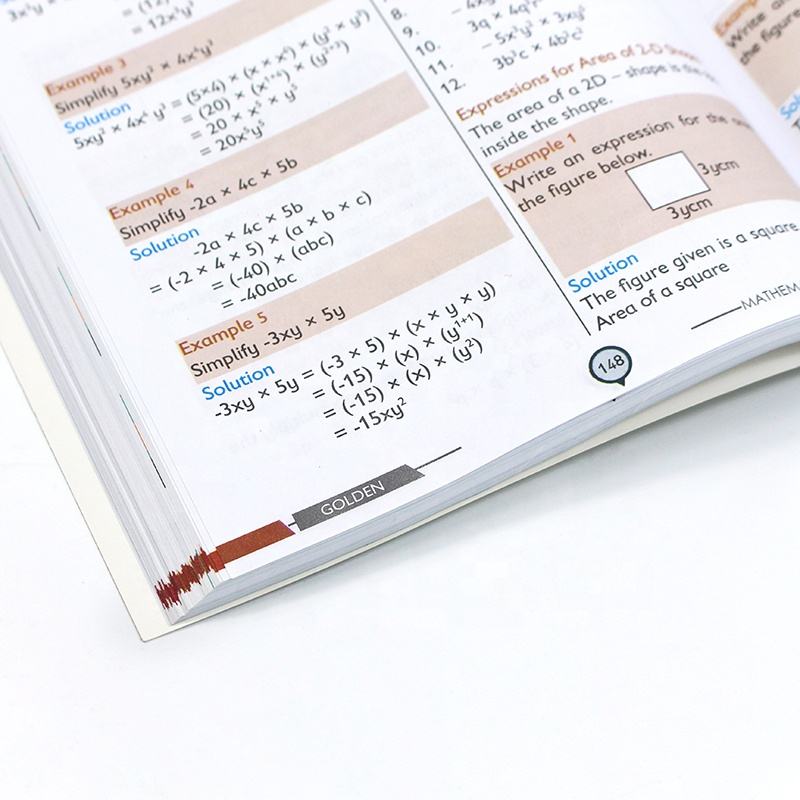 = 12x³y³
Example 3
Simplify 5xy² × 4x⁴y³
Solution
5xy² × 4x⁴ y³ = (5×4) × (x × x⁴) × (y² × y³)
= (20) × (x¹⁺⁴) × (y²⁺³)
= 20 × x⁵ × y⁵
= 20x⁵y⁵
Example 4
Simplify -2a × 4c × 5b
Solution
-2a × 4c × 5b
= (-2 × 4 × 5) × (a × b × c)
= (-40) × (abc)
= -40abc
Example 5
Simplify -3xy × 5y
Solution
-3xy × 5y = (-3 × 5) × (x × y × y)
= (-15) × (x) × (y¹⁺¹)
= (-15) × (x) × (y²)
= -15xy²
GOLDEN
8.
9.
10.
11. - 5x²y³ × 3xy⁵
12. 3b³c × 4b²c³
Expressions for Area of 2-D Shapes
The area of a 2D – shape is the
inside the shape.
Example 1
Write an expression for the
the figure below.
3ycm
3ycm
Solution
The figure given is a square.
Area of a square
MATHEM
148
Write
the figure